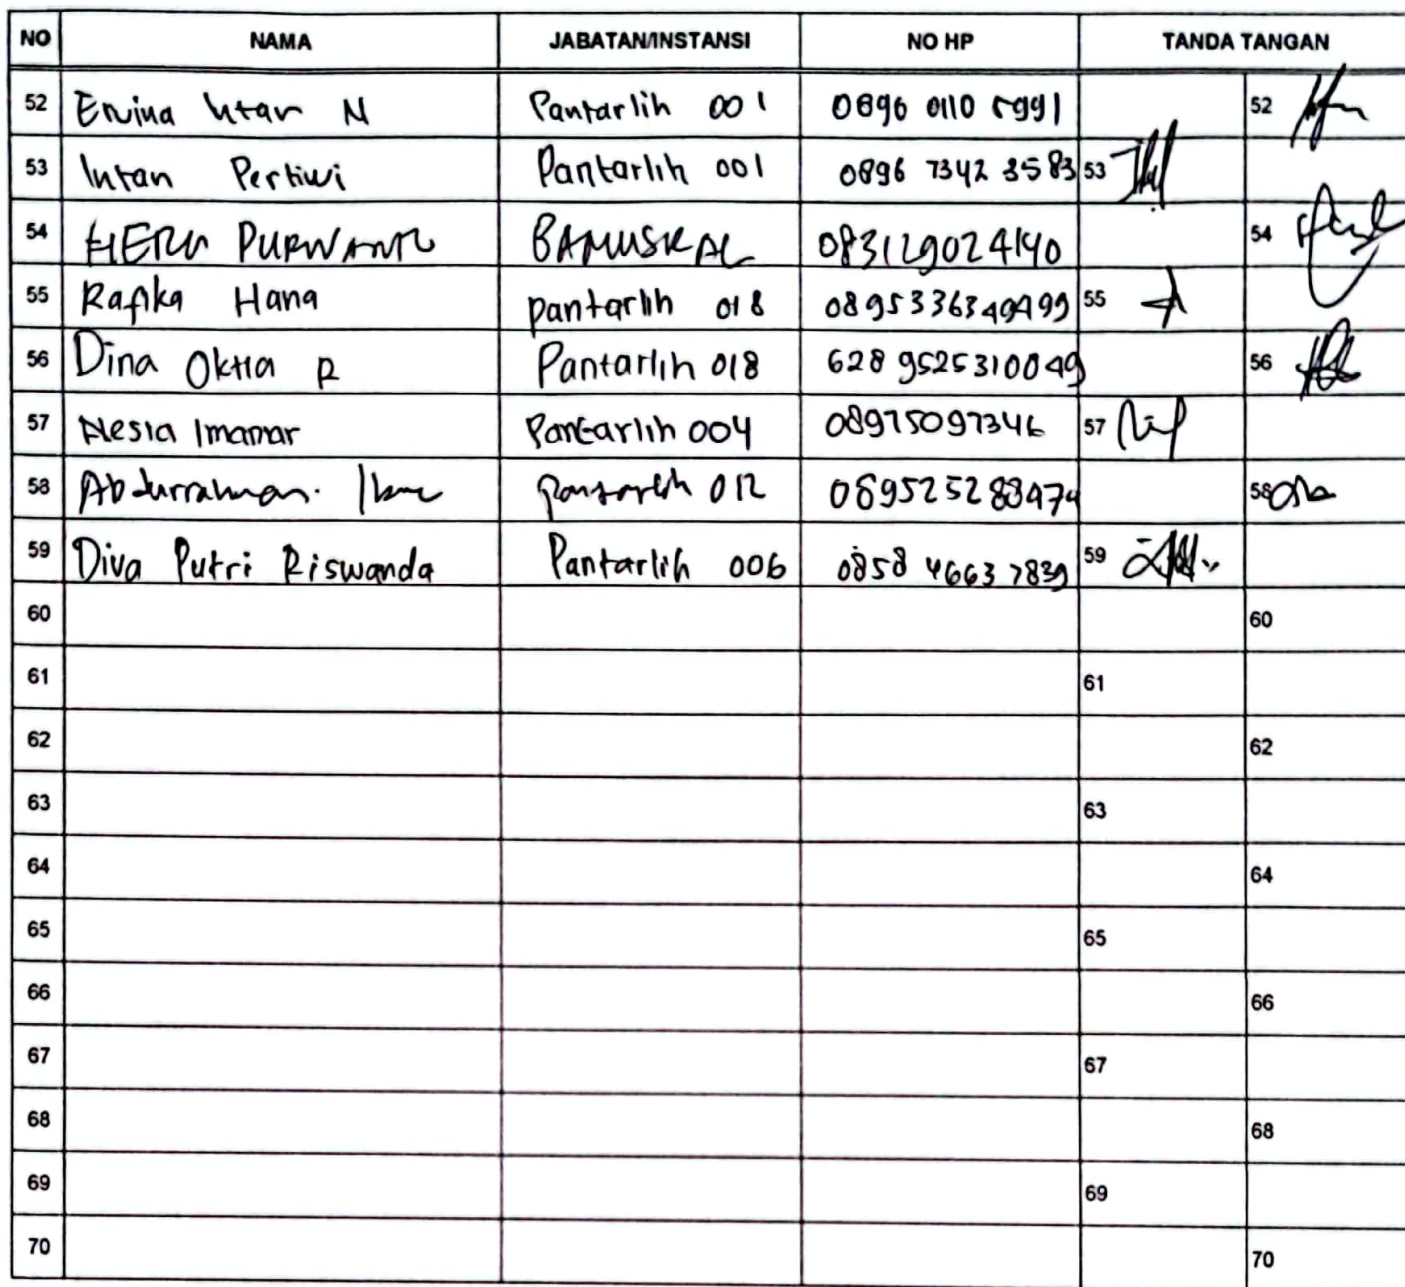 NO NAMA JABATAN/INSTANSI NO HP TANDA TANGAN
52 Ervina Intan N Pantarlih 001 0896 0110 5991 52
53 Intan Pertiwi Pantarlih 001 0896 7342 3583 53
54 HERU PURWANTO BAMUSKAL 083129024140 54
55 Rafika Hana pantarlih 018 0895336349499 55
56 Dina Oktia R Pantarlih 018 628 9525310049 56
57 Alesia Imamar Pantarlih 004 08975097346 57
58 Abdurrahman pantarlih 012 58
59 Diva Putri Riswanda Pantarlih 006 0858 4663 7839 59
60 60
61 61
62 62
63 63
64 64
65 65
66 66
67 67
68 68
69 69
70 70